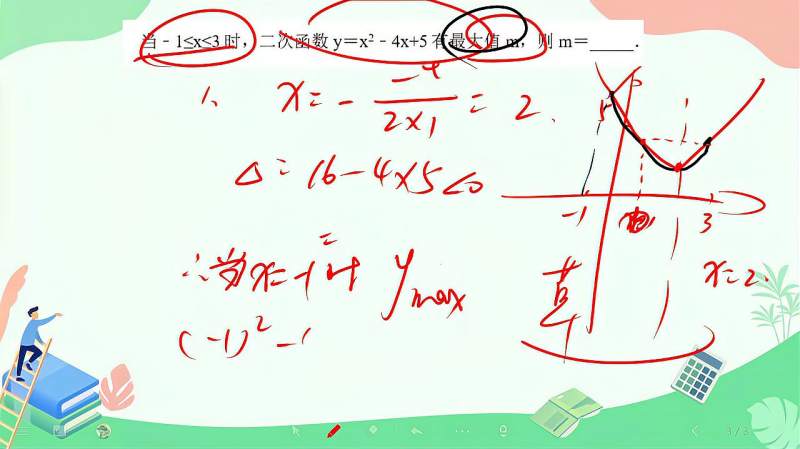 当﹣1≤x<3时，二次函数 y＝x²﹣4x+5 有最大值 m，则 m＝_____.
x = - -4/2×1 = 2.
Δ = 16-4×5<0
∴当x=-1时 ymax
(-1)²-
5
-1
3
x=2.
草
3/3